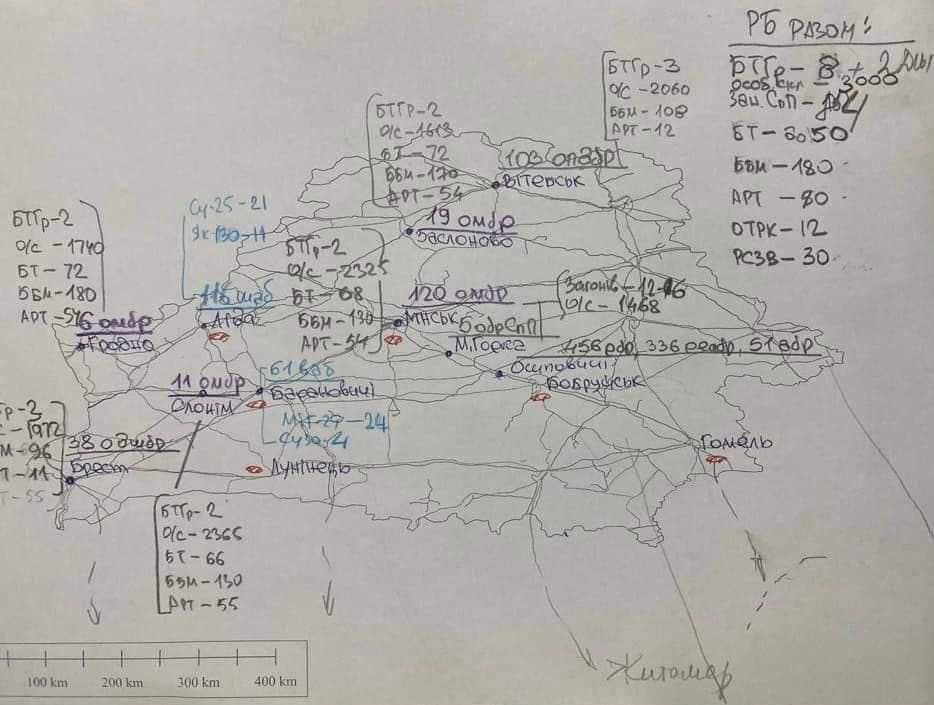 РБ РАЗОМ:
БТГр-8 + 2
особ. скл - 3000
БТ-50
ББМ-180
АРТ-80
ОТРК-12
РСЗВ-30
БТГр-3
О/С-2060
ББМ-108
АРТ-12
103 опдбр
Вітебськ
БТГр-2
О/С-1613
БТ-72
ББМ-170
АРТ-54
19 омбр
Заслоново
Су-25-21
Як130-11
116 шаб
Ліда
БТГр-2
О/С-1740
БТ-72
ББМ-180
АРТ-54
6 омбр
Гродно
БТГр-2
О/С-2325
БТ-68
ББМ-130
АРТ-54
120 омбр
Мінськ
5 обрСпП
Загонів-12-16
О/С-1468
М.Горка
Осиповичі
465 рбр, 336 реабр, 51 абр
Бобруйськ
11 омбр
Слонім
61 ваб
Барановичі
МіГ-29-24
38 одшбр
Брест
ББМ-96
АРТ-11
Лунінець
Гомель
БТГр-2
О/С-2365
БТ-66
ББМ-130
АРТ-55
Житомир
100 km
200 km
300 km
400 km